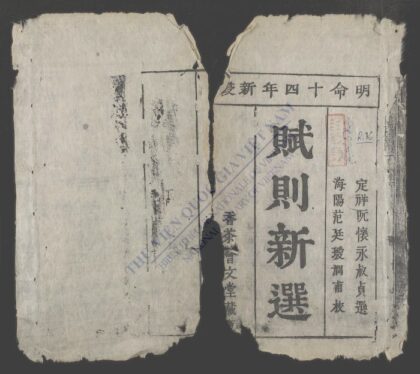 明命十四年新
定祥阮懷永叔貞選
海陽范廷瑗潤甫校
賦則新選
香茶會文堂藏
THƯ VIỆN QUỐC GIA VIỆT NAM